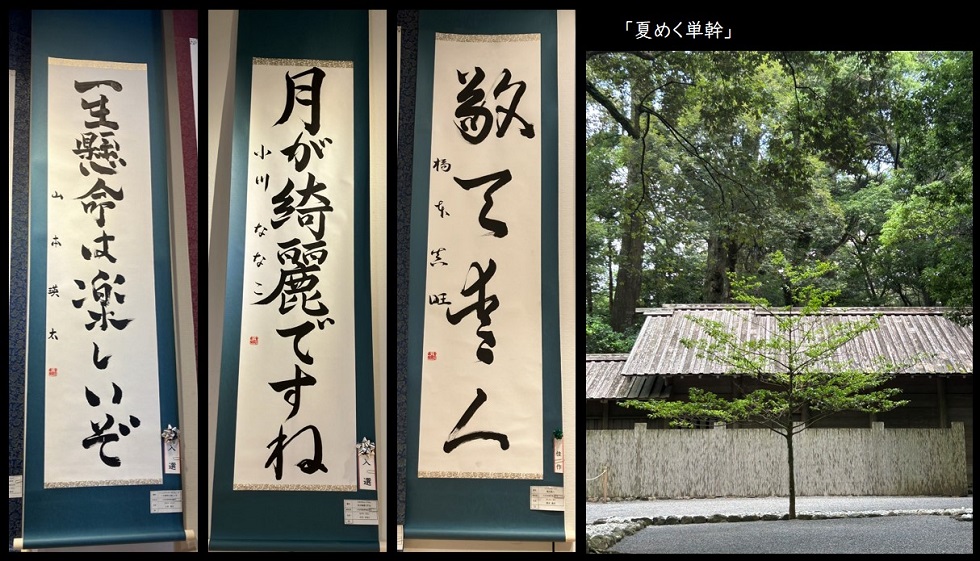 一生懸命は楽しいぞ
山本瑛太
入選
月が綺麗ですね
小川ななこ
入選
敬天愛人
橋本
旺
佳作
「夏めく単幹」